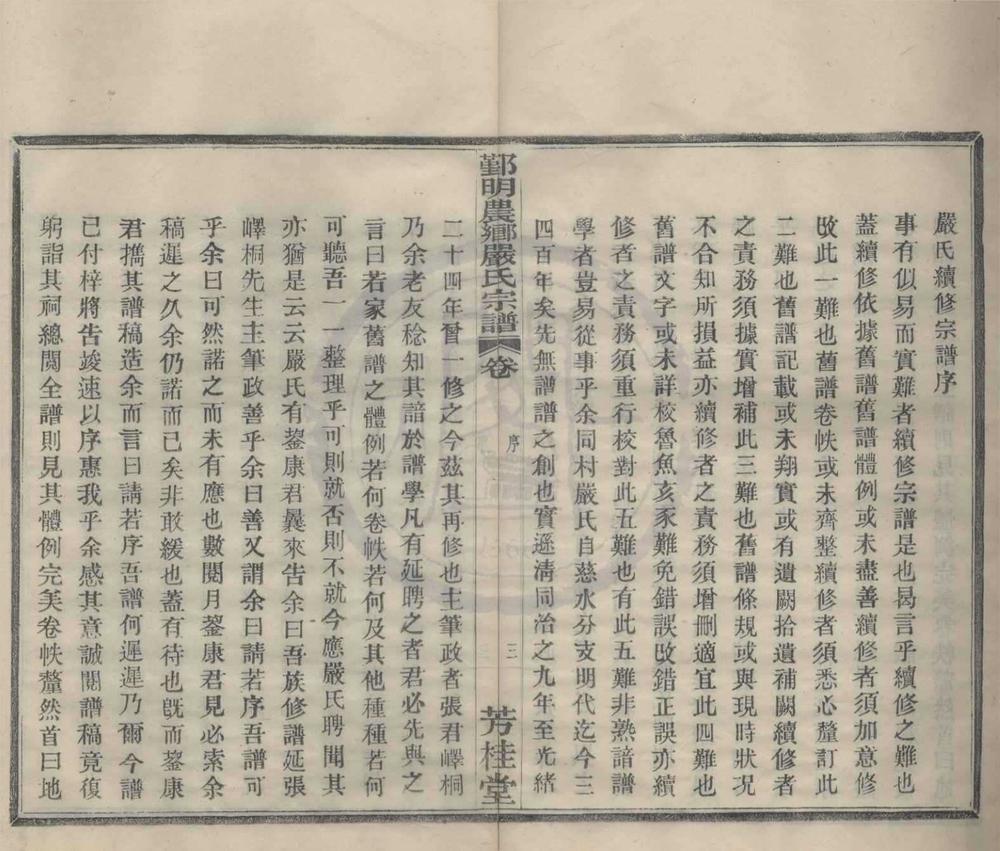 嚴氏續修宗譜序
事有似易而實難者續修宗譜是也曷言乎續修之難也
蓋續修依據舊譜舊譜體例或未盡善續修者須加意修
改此一難也舊譜卷帙或未齊整續修者須悉心釐訂此
二難也舊譜記載或未翔實或有遺闕拾遺補闕續修者
之責務須據實增補此三難也舊譜條規或與現時狀況
不合知所損益亦續修者之責務須增刪適宜此四難也
舊譜文字或未詳校魯魚亥豕難免錯誤改錯正誤亦續
修者之責務須重行校對此五難也有此五難非熟諳譜
學者豈易從事乎余同村嚴氏自慈水分支明代迄今三
四百年矣先無譜譜之創也實遜清同治之九年至光緒
鄞明農鄉嚴氏宗譜 卷 序 三 芳桂堂
二十四年曾一修之今茲其再修也主筆政者張君嶧桐
乃余老友稔知其諳於譜學凡有延聘之者君必先與之
言曰若家舊譜之體例若何卷帙若何及其他種種若何
可聽吾一一整理乎可則就否則不就今應嚴氏聘聞其
亦猶是云云嚴氏有鋆康君曩來告余曰吾族修譜延張
嶧桐先生主筆政善乎余曰善又謂余曰請若序吾譜可
乎余曰可然諾之而未有應也數閱月鋆康君見必索余
稿遲之久余仍諾而已矣非敢緩也蓋有待也旣而鋆康
君攜其譜稿造余而言曰請若序吾譜何遲遲乃爾今譜
已付梓將告竣速以序惠我乎余感其意誠閱譜稿竟復
躬詣其祠總閱全譜則見其體例完美卷帙釐然首曰地